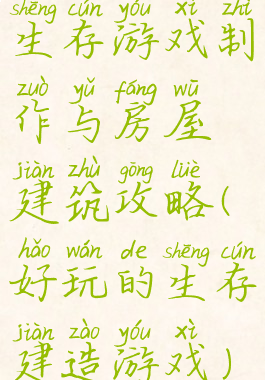 shēng cún yóu xì zhì
生存游戏制
zuò yǔ fáng wū
作与房屋
jiàn zhù gōng lüè
建筑攻略(
hǎo wán de shēng cún
好玩的生存
jiàn zào yóu xì
建造游戏)